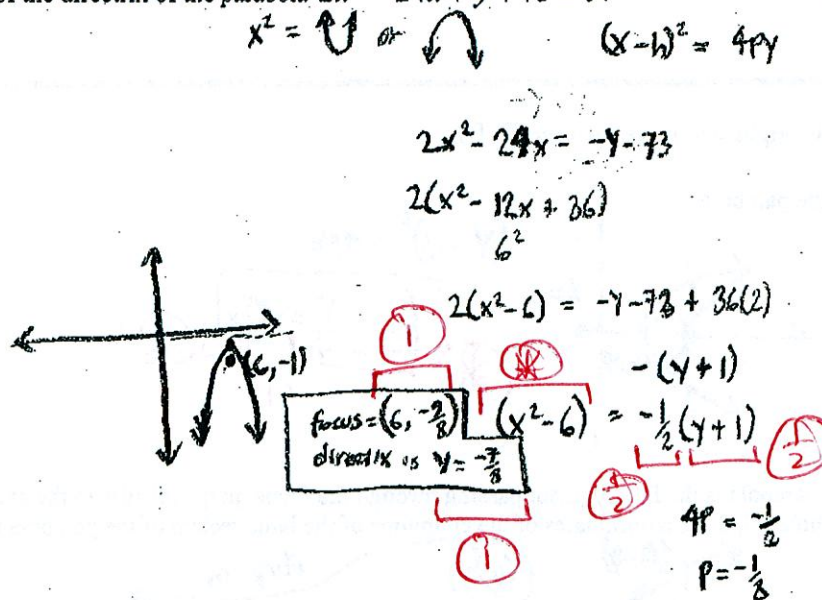 x² = or (x-h)² = 4py
2x² - 24x = -y-73
2(x² - 12x + 36)
6²
2(x²-6) = -y-73 + 36(2)
- (y+1)
(6,-1)
1
(x²-6) = -1/2(y+1)
focus = (6, -9/8)
directix is y = -7/8
1/2
1/2
1
4p = -1/2
p = -1/8